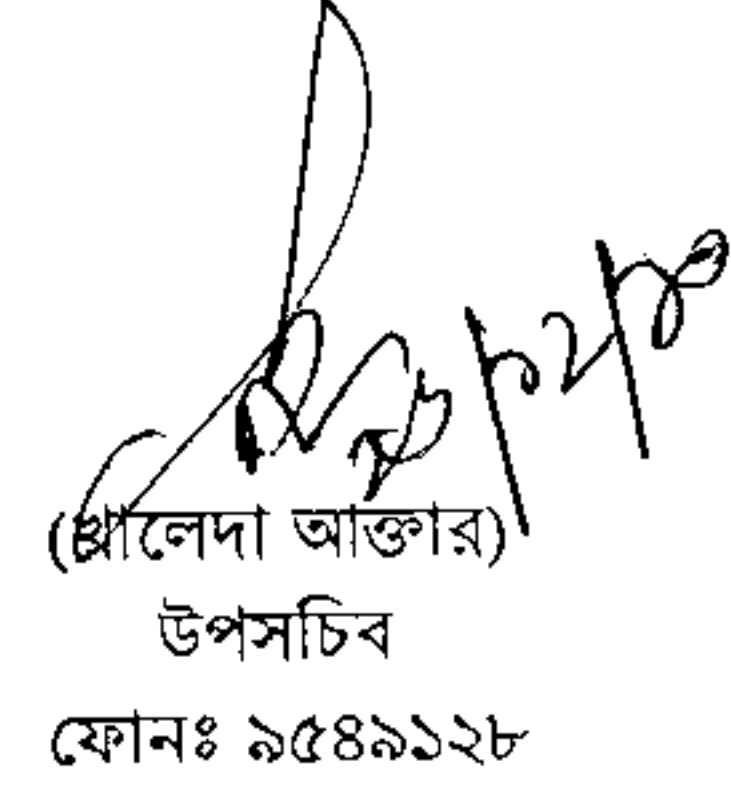 (খালেদা আক্তার)
উপসচিব
ফোনঃ ৯৫৪৯১২৮